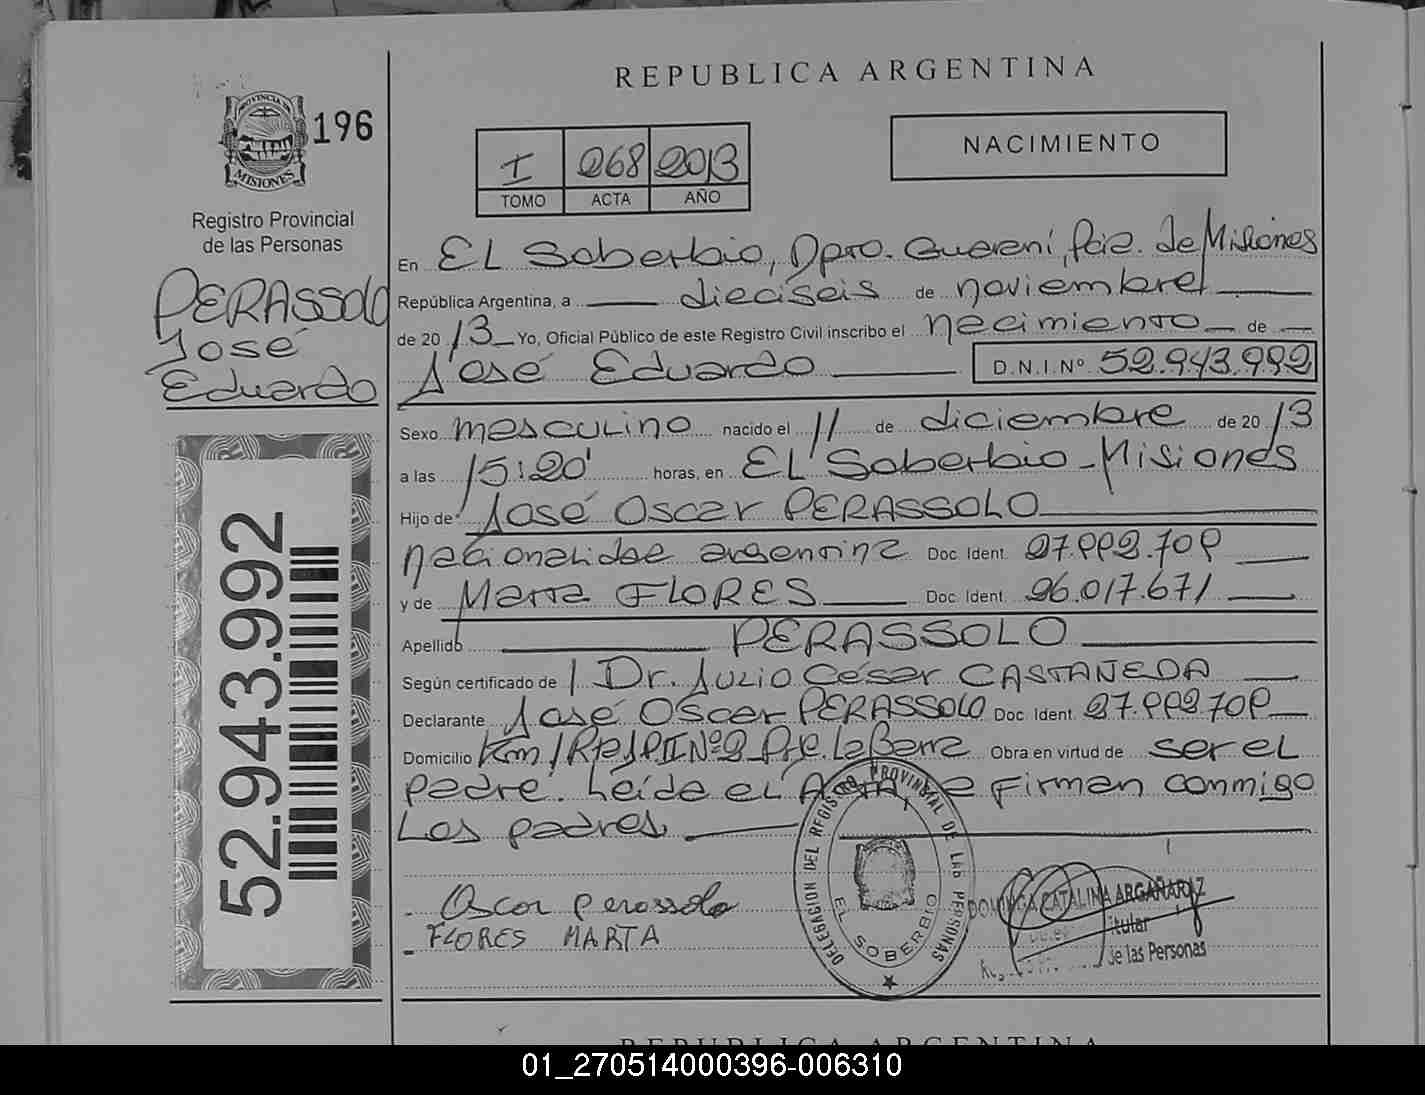 REPUBLICA ARGENTINA
PROVINCIA DE
MISIONES
196
Registro Provincial
de las Personas
PERASSOLO
José
Eduardo
52.943.992
I 268 2013
TOMO ACTA AÑO
NACIMIENTO
En EL Soberbio, Dpto. Guaraní, Pcia. de Misiones
República Argentina, a dieciseis de noviembre
de 2013 Yo, Oficial Público de este Registro Civil inscribo el nacimiento de
José Eduardo D.N.I.Nº 52.943.992
Sexo masculino nacido el 11 de diciembre de 2013
a las 15:20' horas, en EL Soberbio - Misiones
Hijo de José Oscar PERASSOLO
nacionalidad argentina Doc. Ident.
y de Marta FLORES Doc. Ident. 26.017.671
Apellido PERASSOLO
Según certificado de Dr. Julio César CASTAÑEDA
Declarante José Oscar PERASSOLO Doc. Ident.
Domicilio Km Nº2 La Barra Obra en virtud de ser el
padre. Leída el Acta la firman conmigo
Los padres.
DELEGACION DEL REGISTRO PROVINCIAL DE LAS PERSONAS
EL SOBERBIO
Oscar perassolo
FLORES MARTA
CATALINA ARGAÑARAZ
Titular
de las Personas
REPUBLICA ARGENTINA
01_270514000396-006310